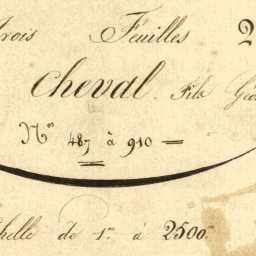 Trois Feuilles 2
Cheval Fils Géo
Nos 487 à 910 =
Echelle de 1 m. à 2500.